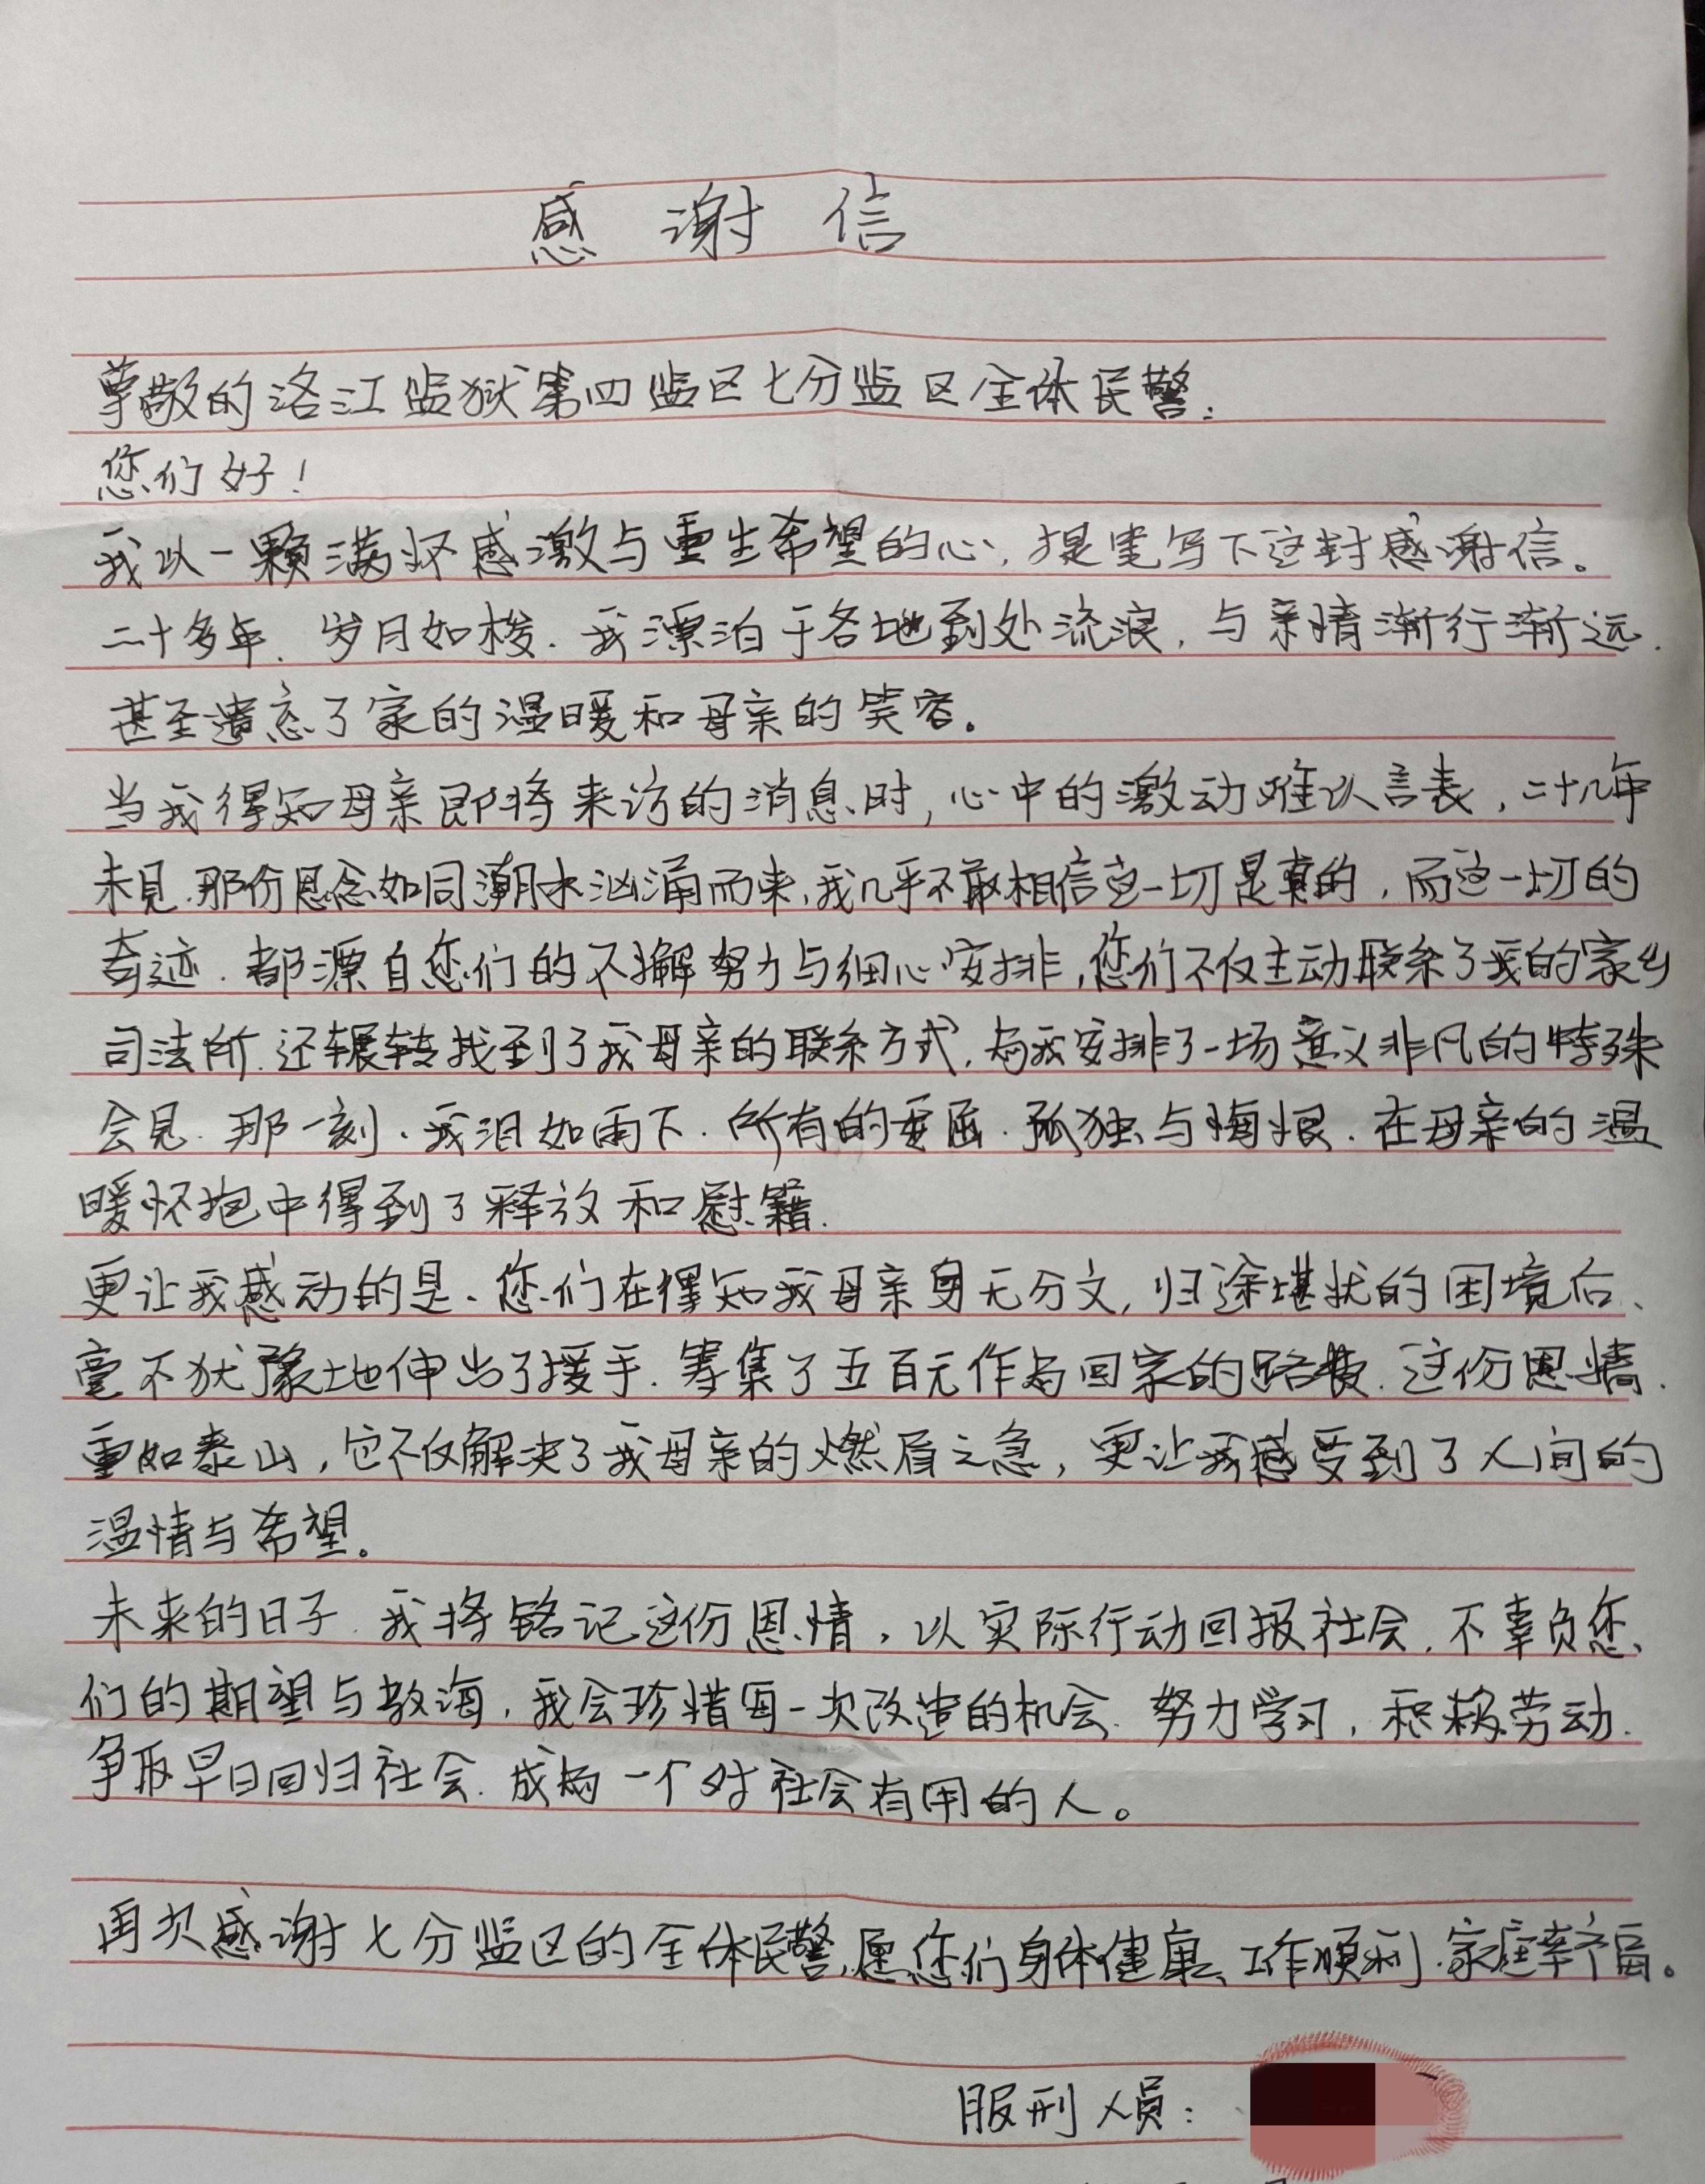 感谢信
尊敬的洛江监狱第四监区七分监区全体民警：
您们好！
我以一颗满怀感激与重生希望的心，提笔写下这封感谢信。
二十多年、岁月如梭．我漂泊于各地到处流浪，与亲情渐行渐远．
甚至遗忘了家的温暖和母亲的笑容。
当我得知母亲即将来访的消息时，心中的激动难以言表，二十几年
未见．那份思念如同潮水汹涌而来，我几乎不敢相信这一切是真的，而这一切的
奇迹．都源自您们的不懈努力与细心安排，您们不仅主动联系了我的家乡
司法所．还辗转找到了我母亲的联系方式，为我安排了一场意义非凡的特殊
会见．那一刻、我泪如雨下．所有的委屈．孤独与悔恨．在母亲的温
暖怀抱中得到了释放和慰籍．
更让我感动的是、您们在得知我母亲身无分文，归途堪忧的困境后、
毫不犹豫地伸出了援手．筹集了五百元作为回家的路费．这份恩情．
重如泰山，它不仅解决了我母亲的燃眉之急，更让我感受到了人间的
温情与希望。
未来的日子．我将铭记这份恩情，以实际行动回报社会，不辜负您
们的期望与教诲，我会珍惜每一次改造的机会．努力学习，积极劳动．
争取早日回归社会．成为一个对社会有用的人。
再次感谢七分监区的全体民警，愿您们身体健康、工作顺利．家庭幸福。
服刑人员：